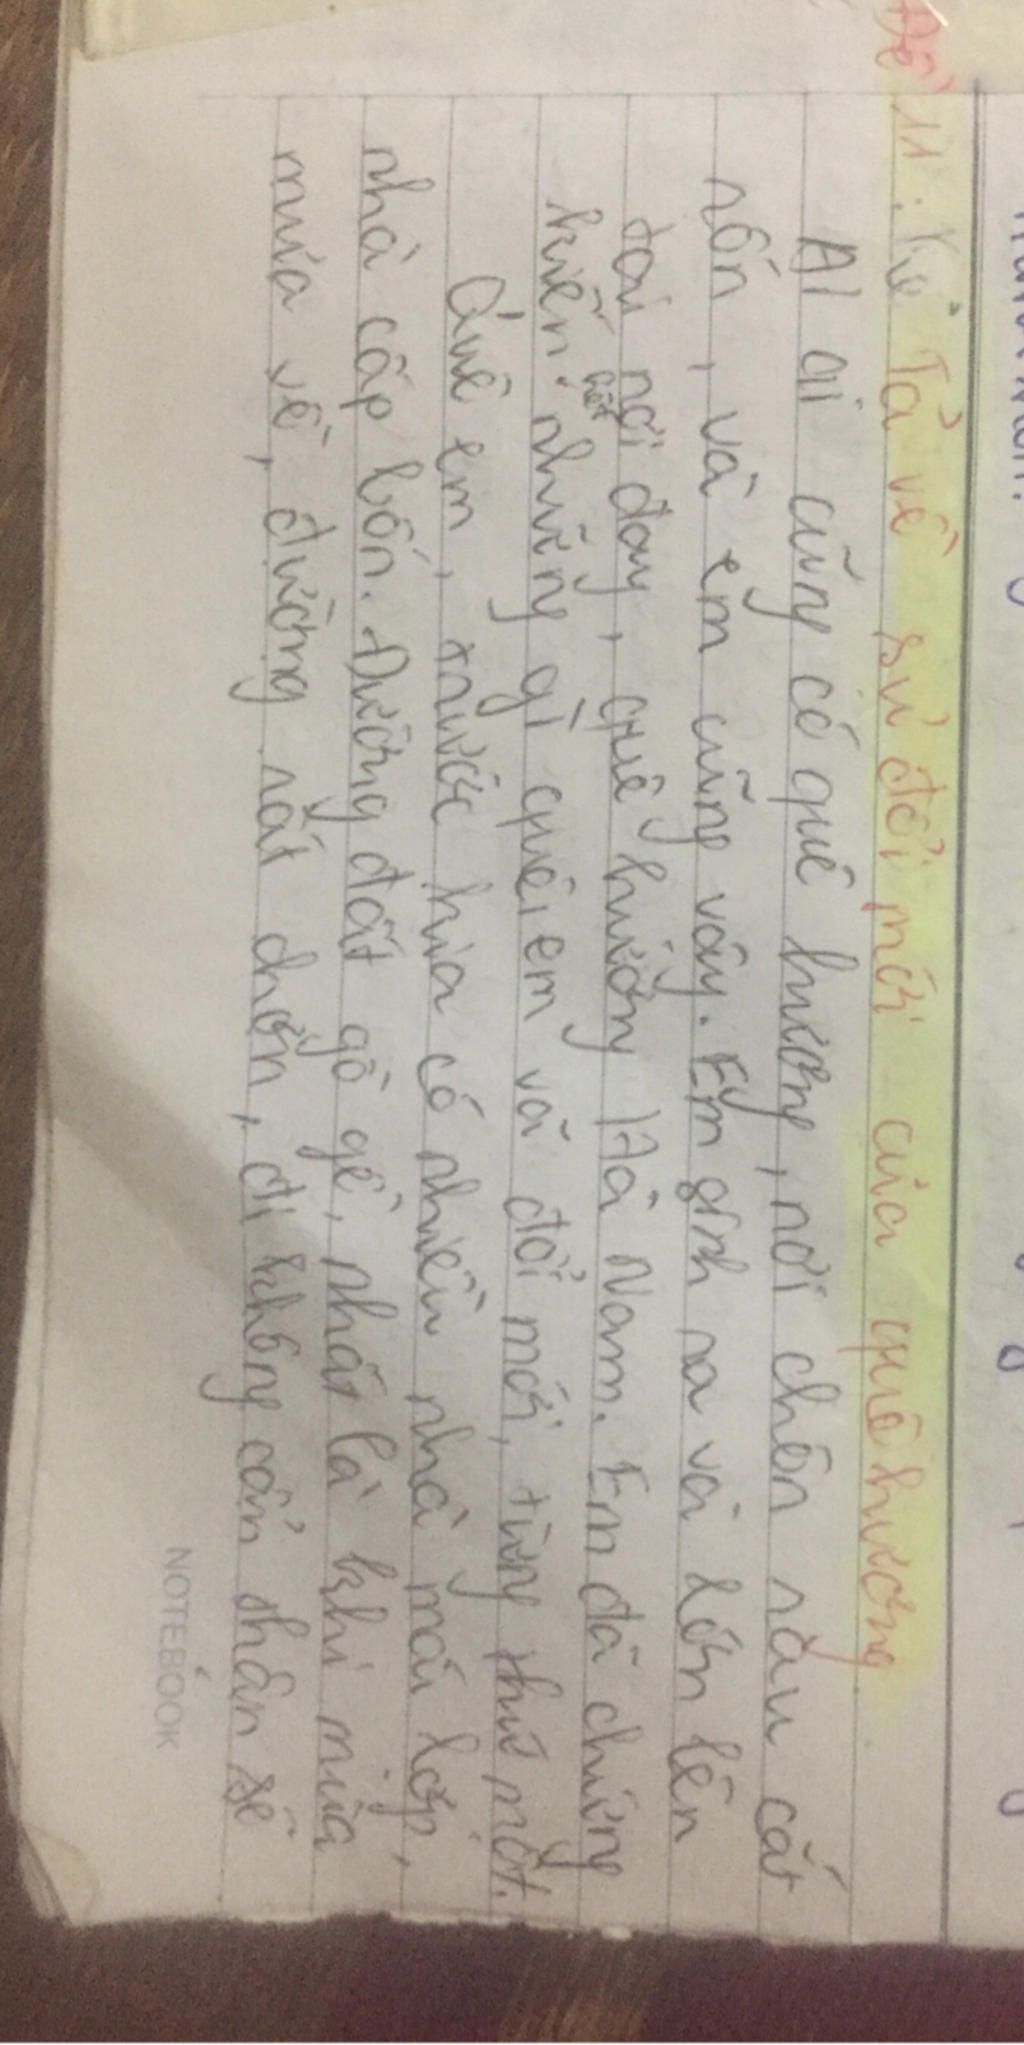 Đề 11: Kể Tả về sự đổi mới của quê hương
Ai ai cũng có quê hương, nơi chôn rau cắt
rốn, và em cũng vậy. Em sinh ra và lớn lên
tại nơi đây, quê hương Hà Nam. Em đã chứng
kiến hết những gì quê em và đổi mới, từng thứ một.
Quê em, trước kia có nhiều nhà mái lợp,
nhà cấp bốn. Đường đất gồ gề, nhất là khi mùa
mưa về, đường rất trơn, đi không cẩn thận sẽ
NOTEBOOK